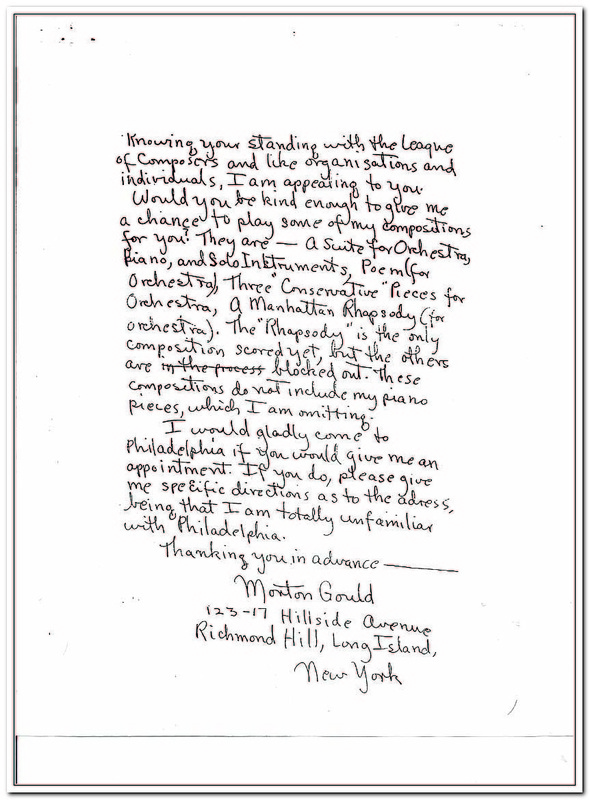 Knowing your standing with the League
of Composers and like organisations and
individuals, I am appealing to you.
Would you be kind enough to give me
a chance to play some of my compositions
for you? They are — A Suite for Orchestra,
Piano, and Solo Instruments, Poem (for
Orchestra), Three "Conservative" Pieces for
Orchestra, A Manhattan Rhapsody (for
orchestra). The "Rhapsody" is the only
composition scored yet, but the others
are in the process blocked out. These
compositions do not include my piano
pieces, which I am omitting.
I would gladly come to
Philadelphia if you would give me an
appointment. If you do, please give
me specific directions as to the adress,
being that I am totally unfamiliar
with Philadelphia.
Thanking you in advance —
Morton Gould
123-17 Hillside Avenue
Richmond Hill, Long Island,
New York